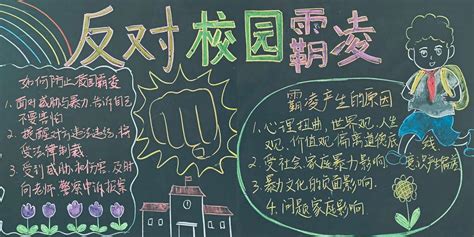 反对校园霸凌
如何阻止校园霸凌
1. 面对威胁与暴力,告诉自己
不要害怕
2. 提醒对方违纪违法,将
受法律制裁
3. 受到威胁和伤害,及时
向老师,警察申诉报案
霸凌产生的原因
1. 心理扭曲,世界观,人生
观,价值观,偏离道德底线
意识严格
2. 受社会,家庭暴力影响
3. 暴力文化的负面影响
4. 问题家庭影响